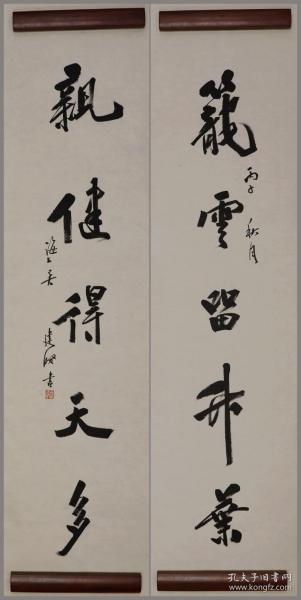 籠雲留竹葉
丙子 秋月
親健得天多
海上吴
建賢書
孔夫子旧书网
www.kongfz.com